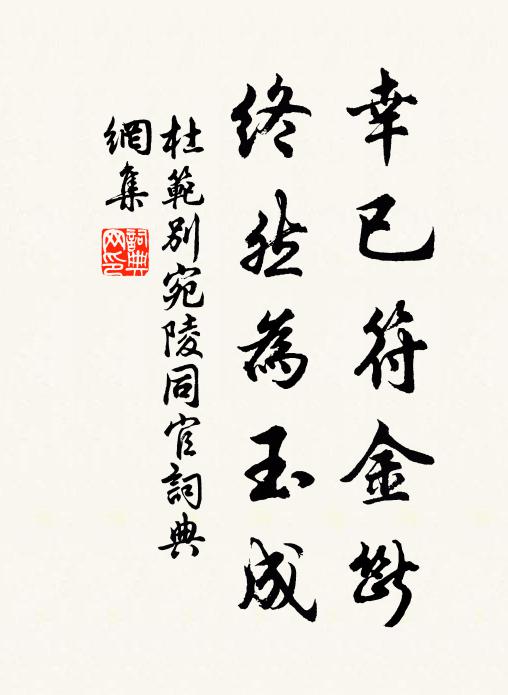 幸已符金斷
終然為玉成
杜範別宛陵同官詞典
網集
詞典網印